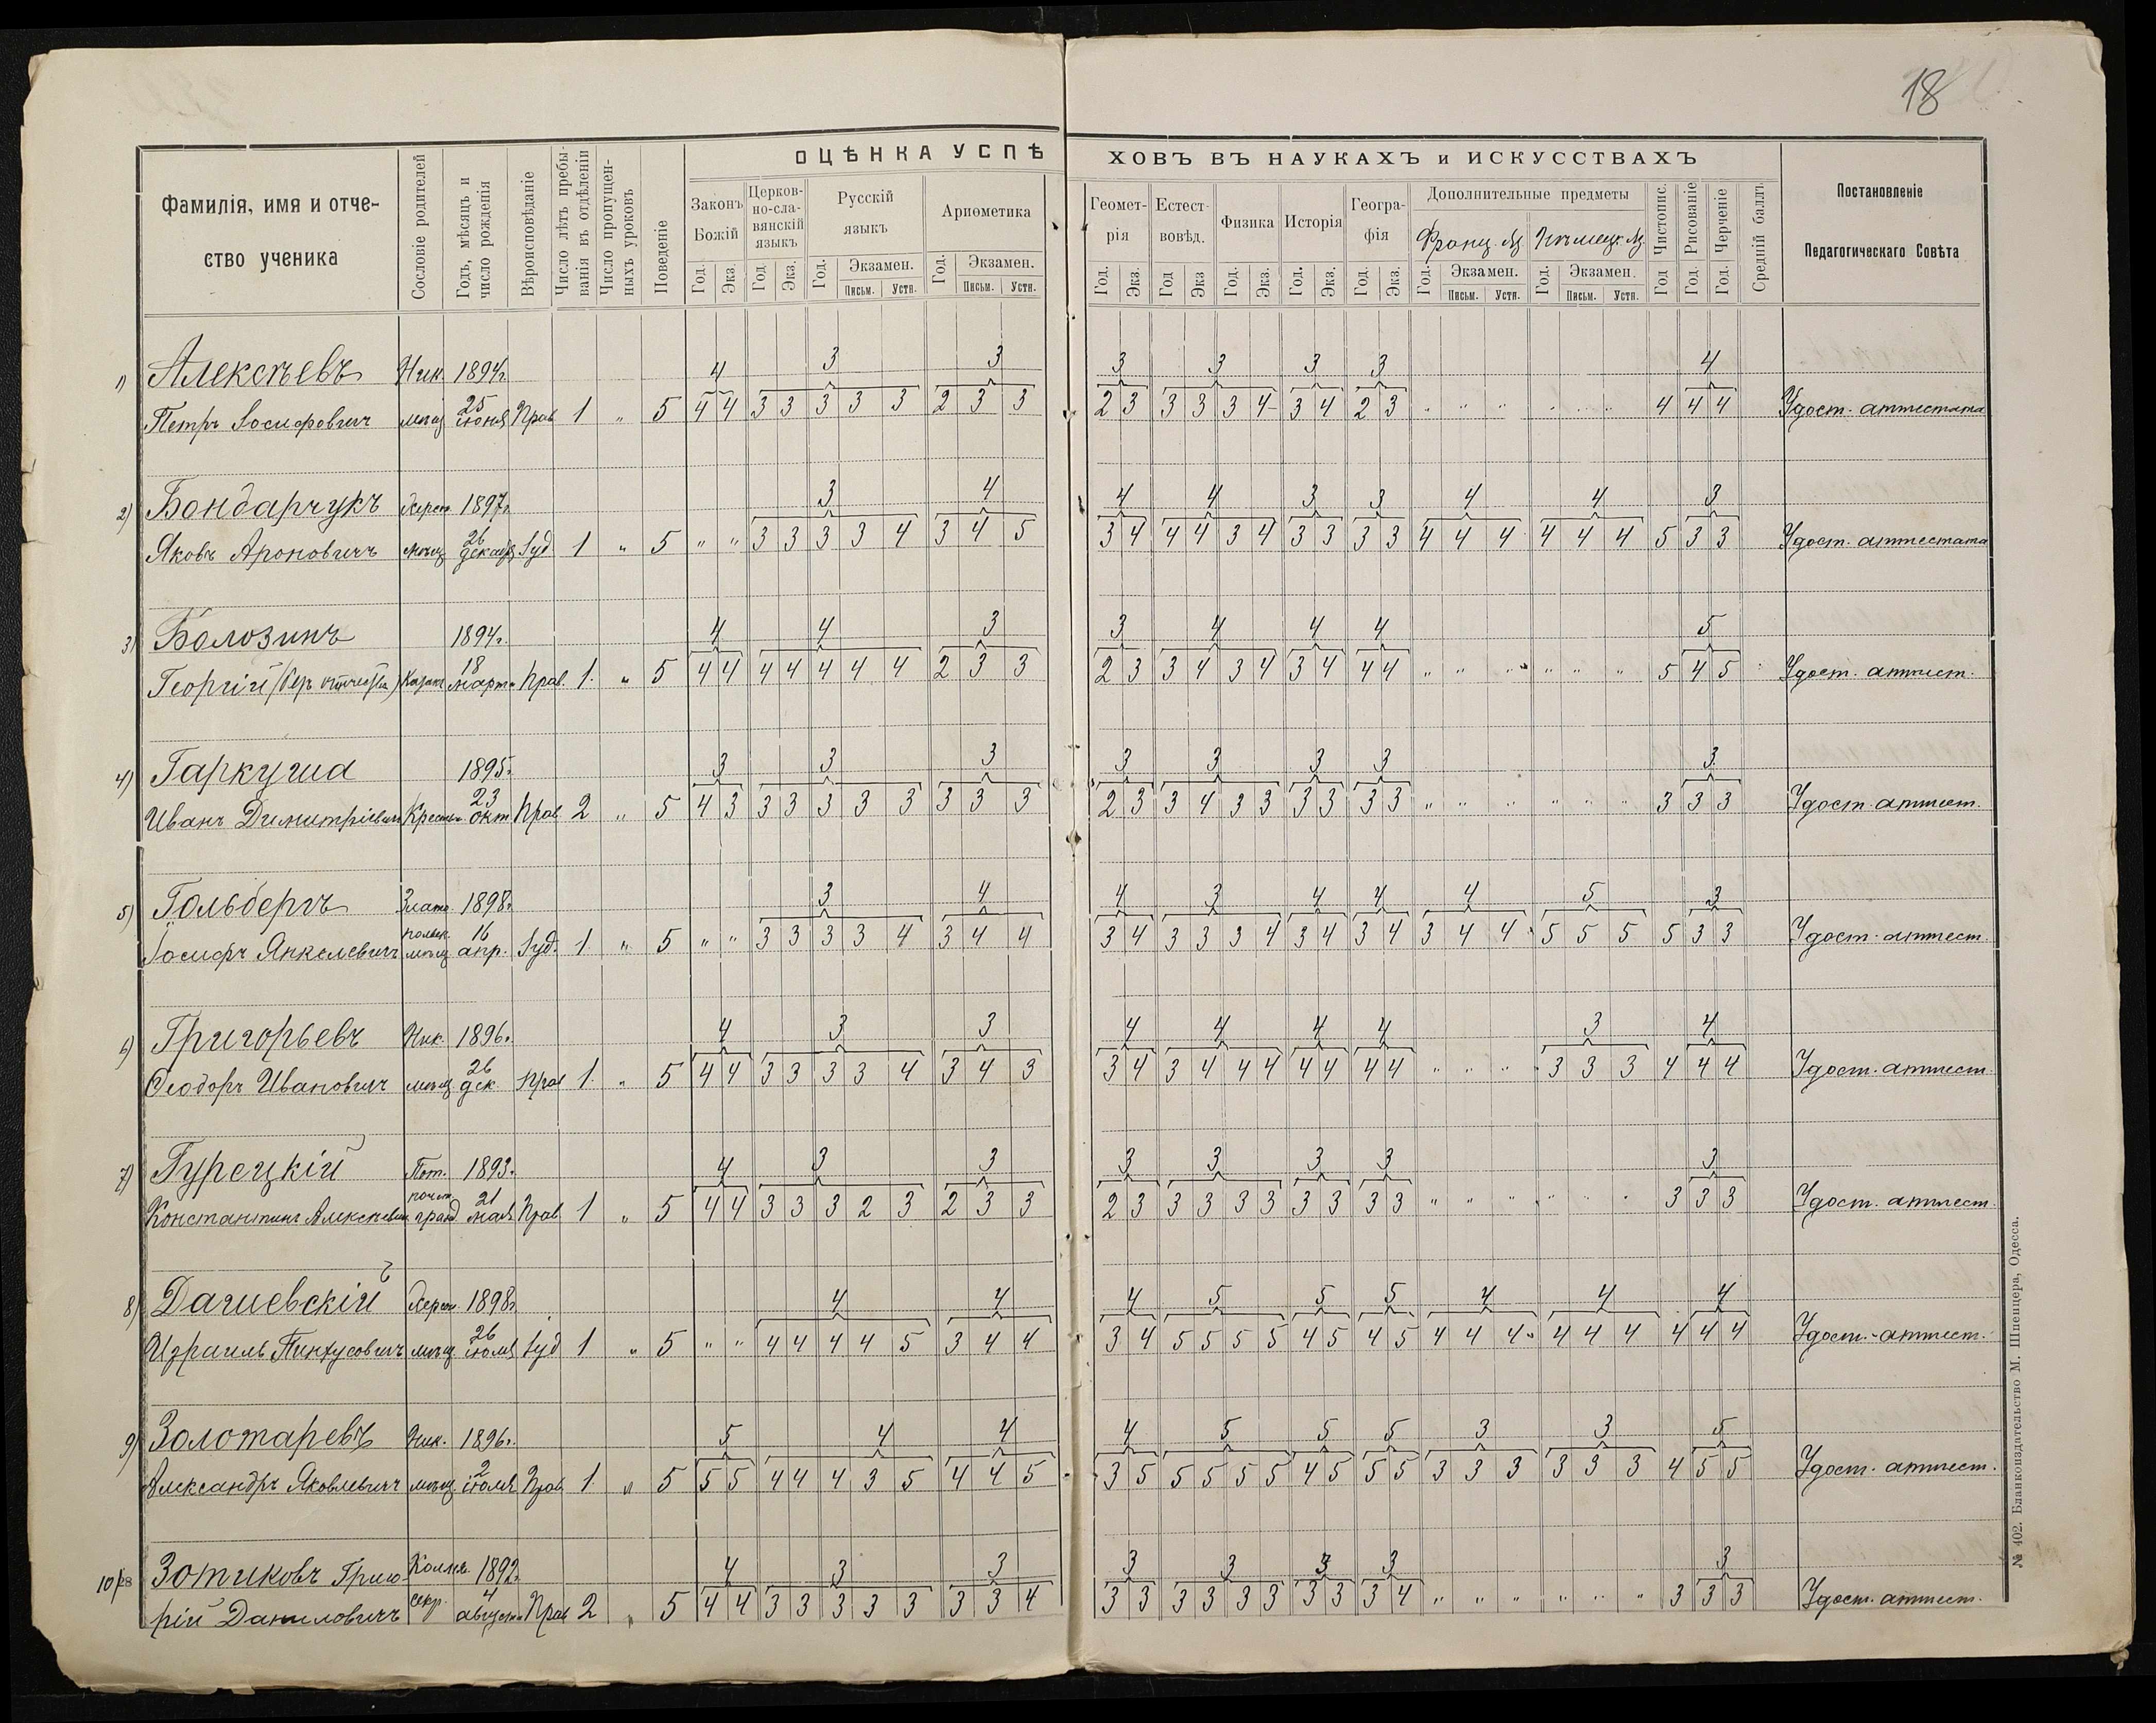 18
ОЦѢНКА УСПѢ
ХОВЪ ВЪ НАУКАХЪ и ИСКУССТВАХЪ
Фамилія, имя и отче-
ство ученика
Сословіе родителей
Годъ, мѣсяцъ и
число рожденія
Вѣроисповѣданіе
Число лѣтъ пребы-
ванія въ отдѣленіи
Число пропущен-
ныхъ уроковъ
Поведеніе
Законъ
Божій
Церков-
но-сла-
вянскій
языкъ
Русскій
языкъ
Ариѳметика
Геомет-
рія
Естест-
вовѣд.
Физика
Исторія
Геогра-
фія
Дополнительные предметы
Франц. яз. Нѣмецк. яз.
Чистопис.
Рисованіе
Черченіе
Средній баллъ
Постановленіе
Педагогическаго Совѣта
Год. Экз. Год Экз. Год. Экзамен. Год. Экзамен.
Письм. Устн. Письм. Устн.
Год. Экз. Год Экз Год. Экз. Год. Экз. Год. Экз. Год. Экзамен. Год. Экзамен. Год Год. Год.
Письм. Устн. Письм. Устн.
1) Алексѣевъ Ник. 1894г. 4 3 3 3 3 3 3 4
Петръ Іосифовичъ мѣщ 25 іюня Прав 1 „ 5 4 4 3 3 3 3 3 2 3 3 2 3 3 3 3 4 3 4 2 3 „ „ „ „ „ „ 4 4 4 Удост. аттестата
2) Бондарчукъ Херсон 1897г. 3 4 4 4 3 3 4 4 3
Яковъ Ароновичъ мѣщ 26 декабр Іуд 1 „ 5 „ „ 3 3 3 3 4 3 4 5 3 4 4 4 3 4 3 3 3 3 4 4 4 4 4 4 5 3 3 Удост. аттестата
3) Болозинъ 1894г. 4 4 3 3 4 4 4 5
Георгій (безъ отчества) Казакъ 18 марта Прав. 1. „ 5 4 4 4 4 4 4 4 2 3 3 2 3 3 4 3 4 3 4 4 4 „ „ „ „ „ „ 5 4 5 Удост. аттест.
4) Гаркуша 1895г. 3 3 3 3 3 3 3 3
Иванъ Димитріевичъ Крестьн 23 окт Прав 2 „ 5 4 3 3 3 3 3 3 3 3 3 2 3 3 4 3 3 3 3 3 3 „ „ „ „ „ „ 3 3 3 Удост. аттест.
5) Гольбергъ Злато 1898г. 3 4 4 3 4 4 4 5 3
Іосифъ Янкелевичъ польск. мѣщ 16 апр. Іуд. 1. „ 5 „ „ 3 3 3 3 4 3 4 4 3 4 3 3 3 4 3 4 3 4 3 4 4 5 5 5 5 3 3 Удост. аттест.
6) Григорьевъ Ник. 1896г. 4 3 3 4 4 4 4 3 4
Ѳеодоръ Ивановичъ мѣщ 26 дек Прав 1. „ 5 4 4 3 3 3 3 4 3 4 3 3 4 3 4 4 4 4 4 4 4 „ „ „ 3 3 3 4 4 4 Удост. аттест.
7) Гурецкій Пот. 1893г. 4 3 3 3 3 3 3 3
Константинъ Алексѣевичъ почет. гражд 21 мая Прав 1 „ 5 4 4 3 3 3 2 3 2 3 3 2 3 3 3 3 3 3 3 3 3 „ „ „ „ „ „ 3 3 3 Удост. аттест.
8) Дашевскій Херсон 1898г. 4 4 4 5 5 5 4 4 4
Израиль Пинхусовичъ мѣщ 26 іюля Іуд 1 „ 5 „ „ 4 4 4 4 5 3 4 4 3 4 5 5 5 5 4 5 4 5 4 4 4 4 4 4 4 4 4 Удост. аттест.
9) Золотаревъ Ник. 1896г. 5 4 4 4 5 5 5 3 3 5
Александръ Яковлевичъ мѣщ. 2 іюля Прав 1. „ 5 5 5 4 4 4 3 5 4 4 5 3 5 5 5 5 5 4 5 5 5 3 3 3 3 3 3 4 5 5 Удост. аттест.
10) Зотиковъ Григо Коллеж. 1892г. 4 3 3 3 3 3 3 3
рій Даниловичъ секр. 4 августа Прав 2 „ 5 4 4 3 3 3 3 3 3 3 4 3 3 3 3 3 3 3 3 3 4 „ „ „ „ „ „ 3 3 3 Удост. аттест.
№ 402. Бланкоиздательство М. Шпенцера, Одесса.